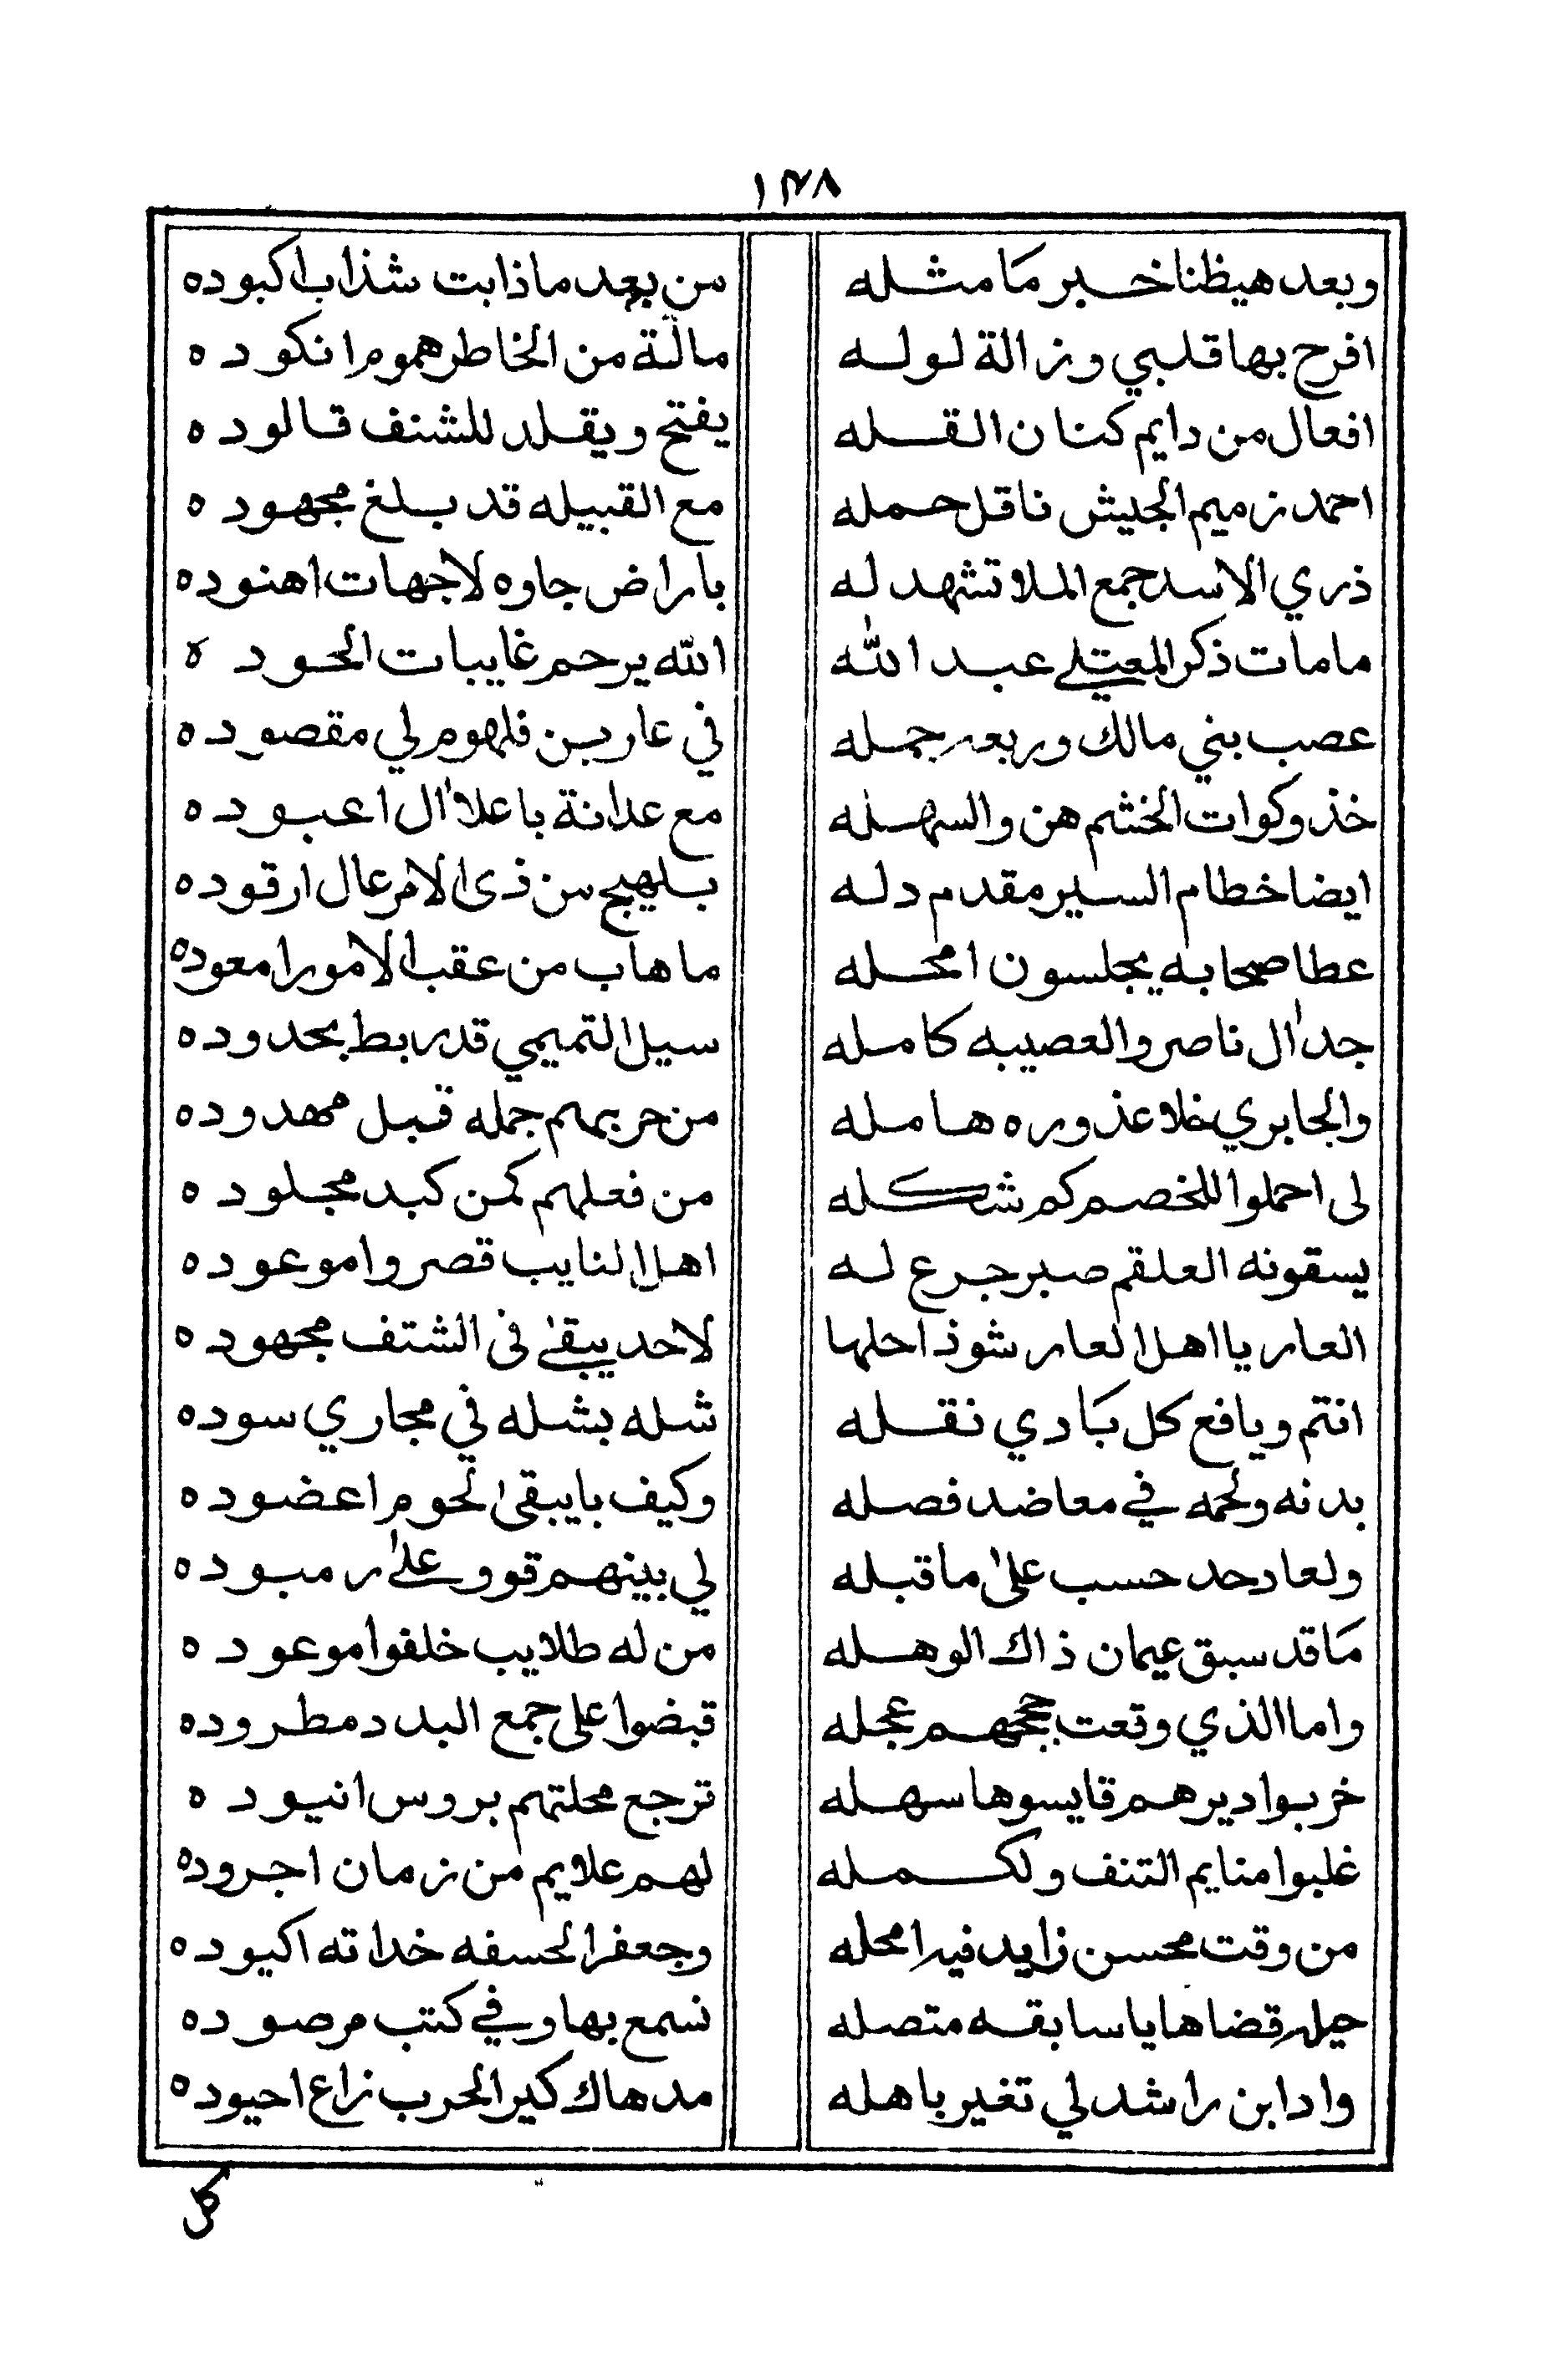 ١٣٨
وبعد هيظنا خبر ما مثله من بعد ماذابت شذاب اكبوده
افرح بها قلبي وزالة لوله مالتة من الخاطر هموم انكوده
افعال من دايم كنان القله يفتح ويقلد للشنف قالوده
احمد زميم الجيش ناقل حمله مع القبيله قد بلغ مجهوده
ذري الاسد جمع الملا تشهد له باراض جاوه لاجهات اهنوده
ما مات ذكر المعتلي عبد الله الله يرحم غايبات الحوده
عصب بني مالك وربعه جمله في عاربن فلهوم لي مقصوده
خذ وكوات الخشم هن والسهله مع عدانة باعلا ال اعبوده
ايضا خطام السير مقدم دله بلهيج من ذى الامر عال ارقوده
عطا صحابه يجلسون امحله ما هاب من عقب الامور امعوده
جد ال ناصر والعصيبه كامله سيل التميمي قد ربط بحدوده
والجابري خلا عذوره هامله من حربهم جمله قبل مهدوده
لى احملوا للخصم كم شكله من فعلهم كمن كبد مجلوده
يسقونه العلقم صبر جرع له اهل النايب قصروا موعوده
العار يا اهل العار شوذا حلها لاحد يبقى فى الشتف مجهوده
انتم ويافع كل بادي نقله شله بشله في مجاري سوده
بدنه ولحمه في معاضد فصله وكيف بايبقى لحوم اعضوده
ولعاد حد حسب على ما قبله لي بينهم قوو على رمبوده
ما قد سبق عيمان ذاك الوهله من له طلايب خلفوا موعوده
واما الذي وقعت حججهم عجله قبضوا على جمع البدد مطروده
خربوا ديرهم قايسوها سهله ترجع محلتهم بروس انيوده
غلبوا منايم التنف ولكمله لهم علايم من زمان اجروده
من وقت محسن زايد فيه امحله وجعفر الحسفه خداته اكيوده
حيله قضاها يا سابقه متصله نسمع بها وفي كتب مرصوده
وادا بن راشد لي تغير باهله مدهاك كير الحرب زاع احيوده
كل